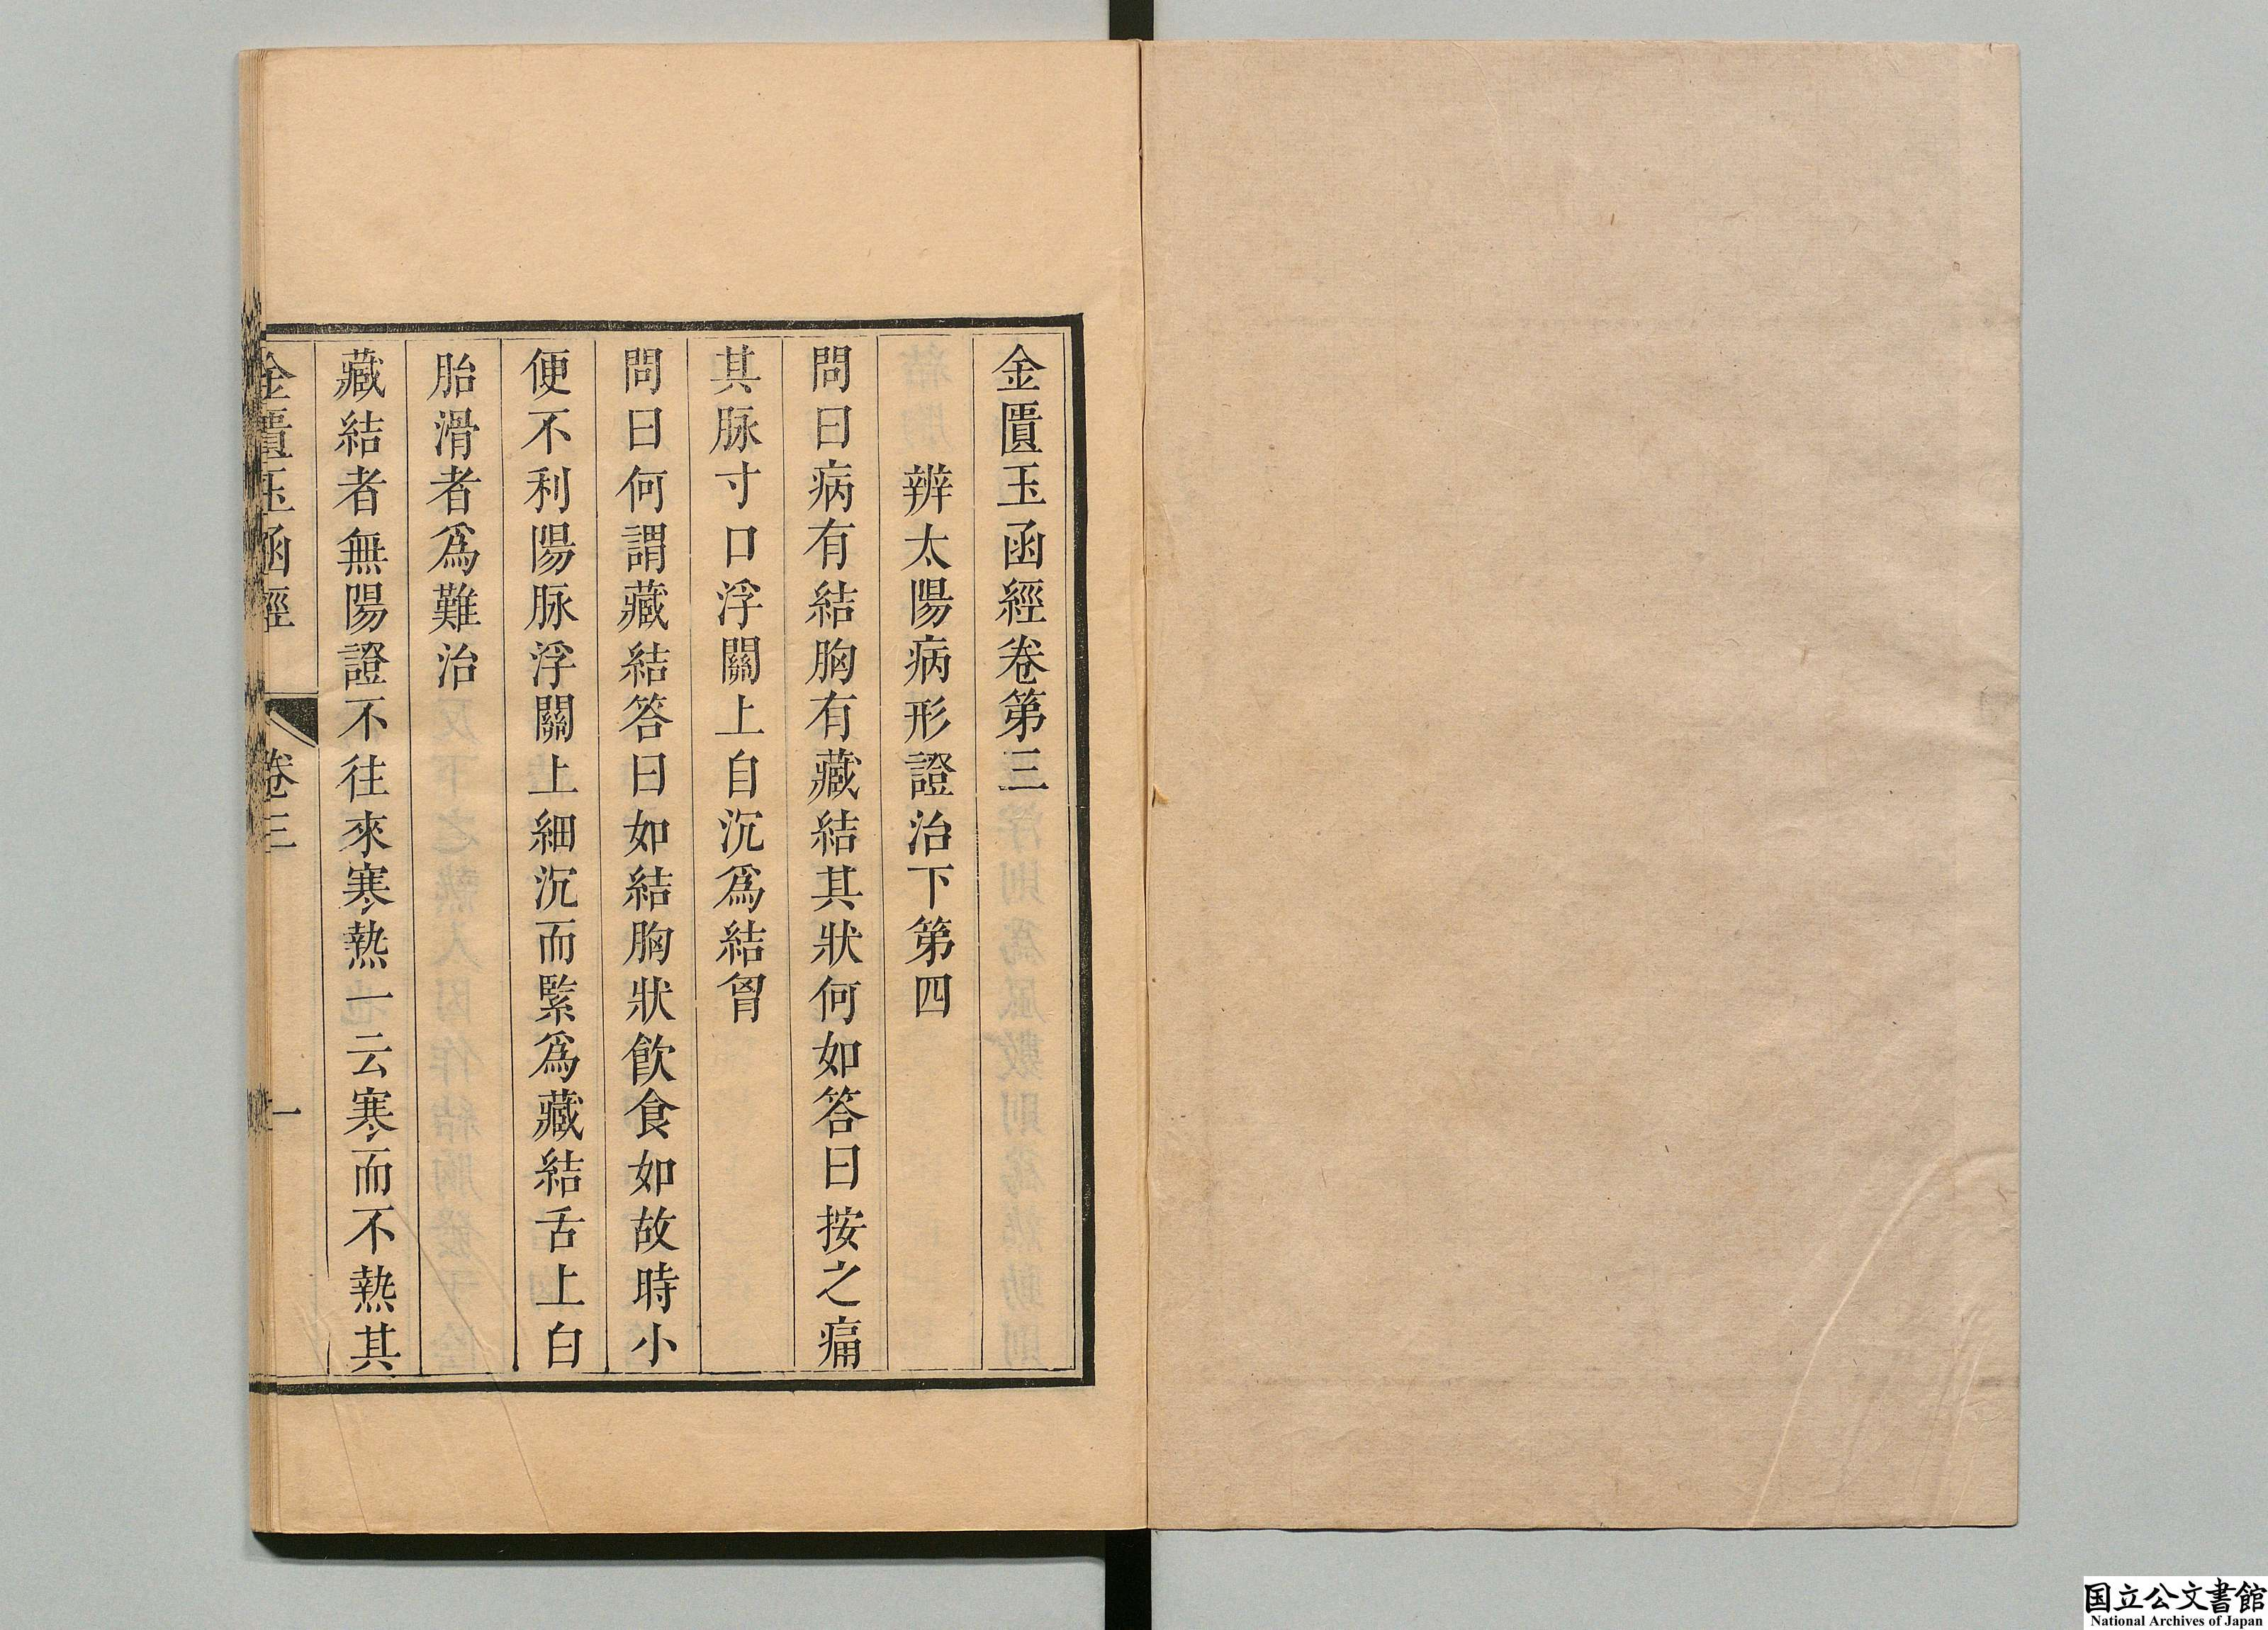 金匱玉函經卷第三
辨太陽病形證治下第四
問曰病有結胸有藏結其狀何如答曰按之痛
其脉寸口浮關上自沉爲結胷
問曰何謂藏結答曰如結胸狀飲食如故時小
便不利陽脉浮關上細沉而緊爲藏結舌上白
胎滑者爲難治
藏結者無陽證不往來寒熱一云寒而不熱其
金匱玉函經 卷三 一
国立公文書館
National Archives of Japan